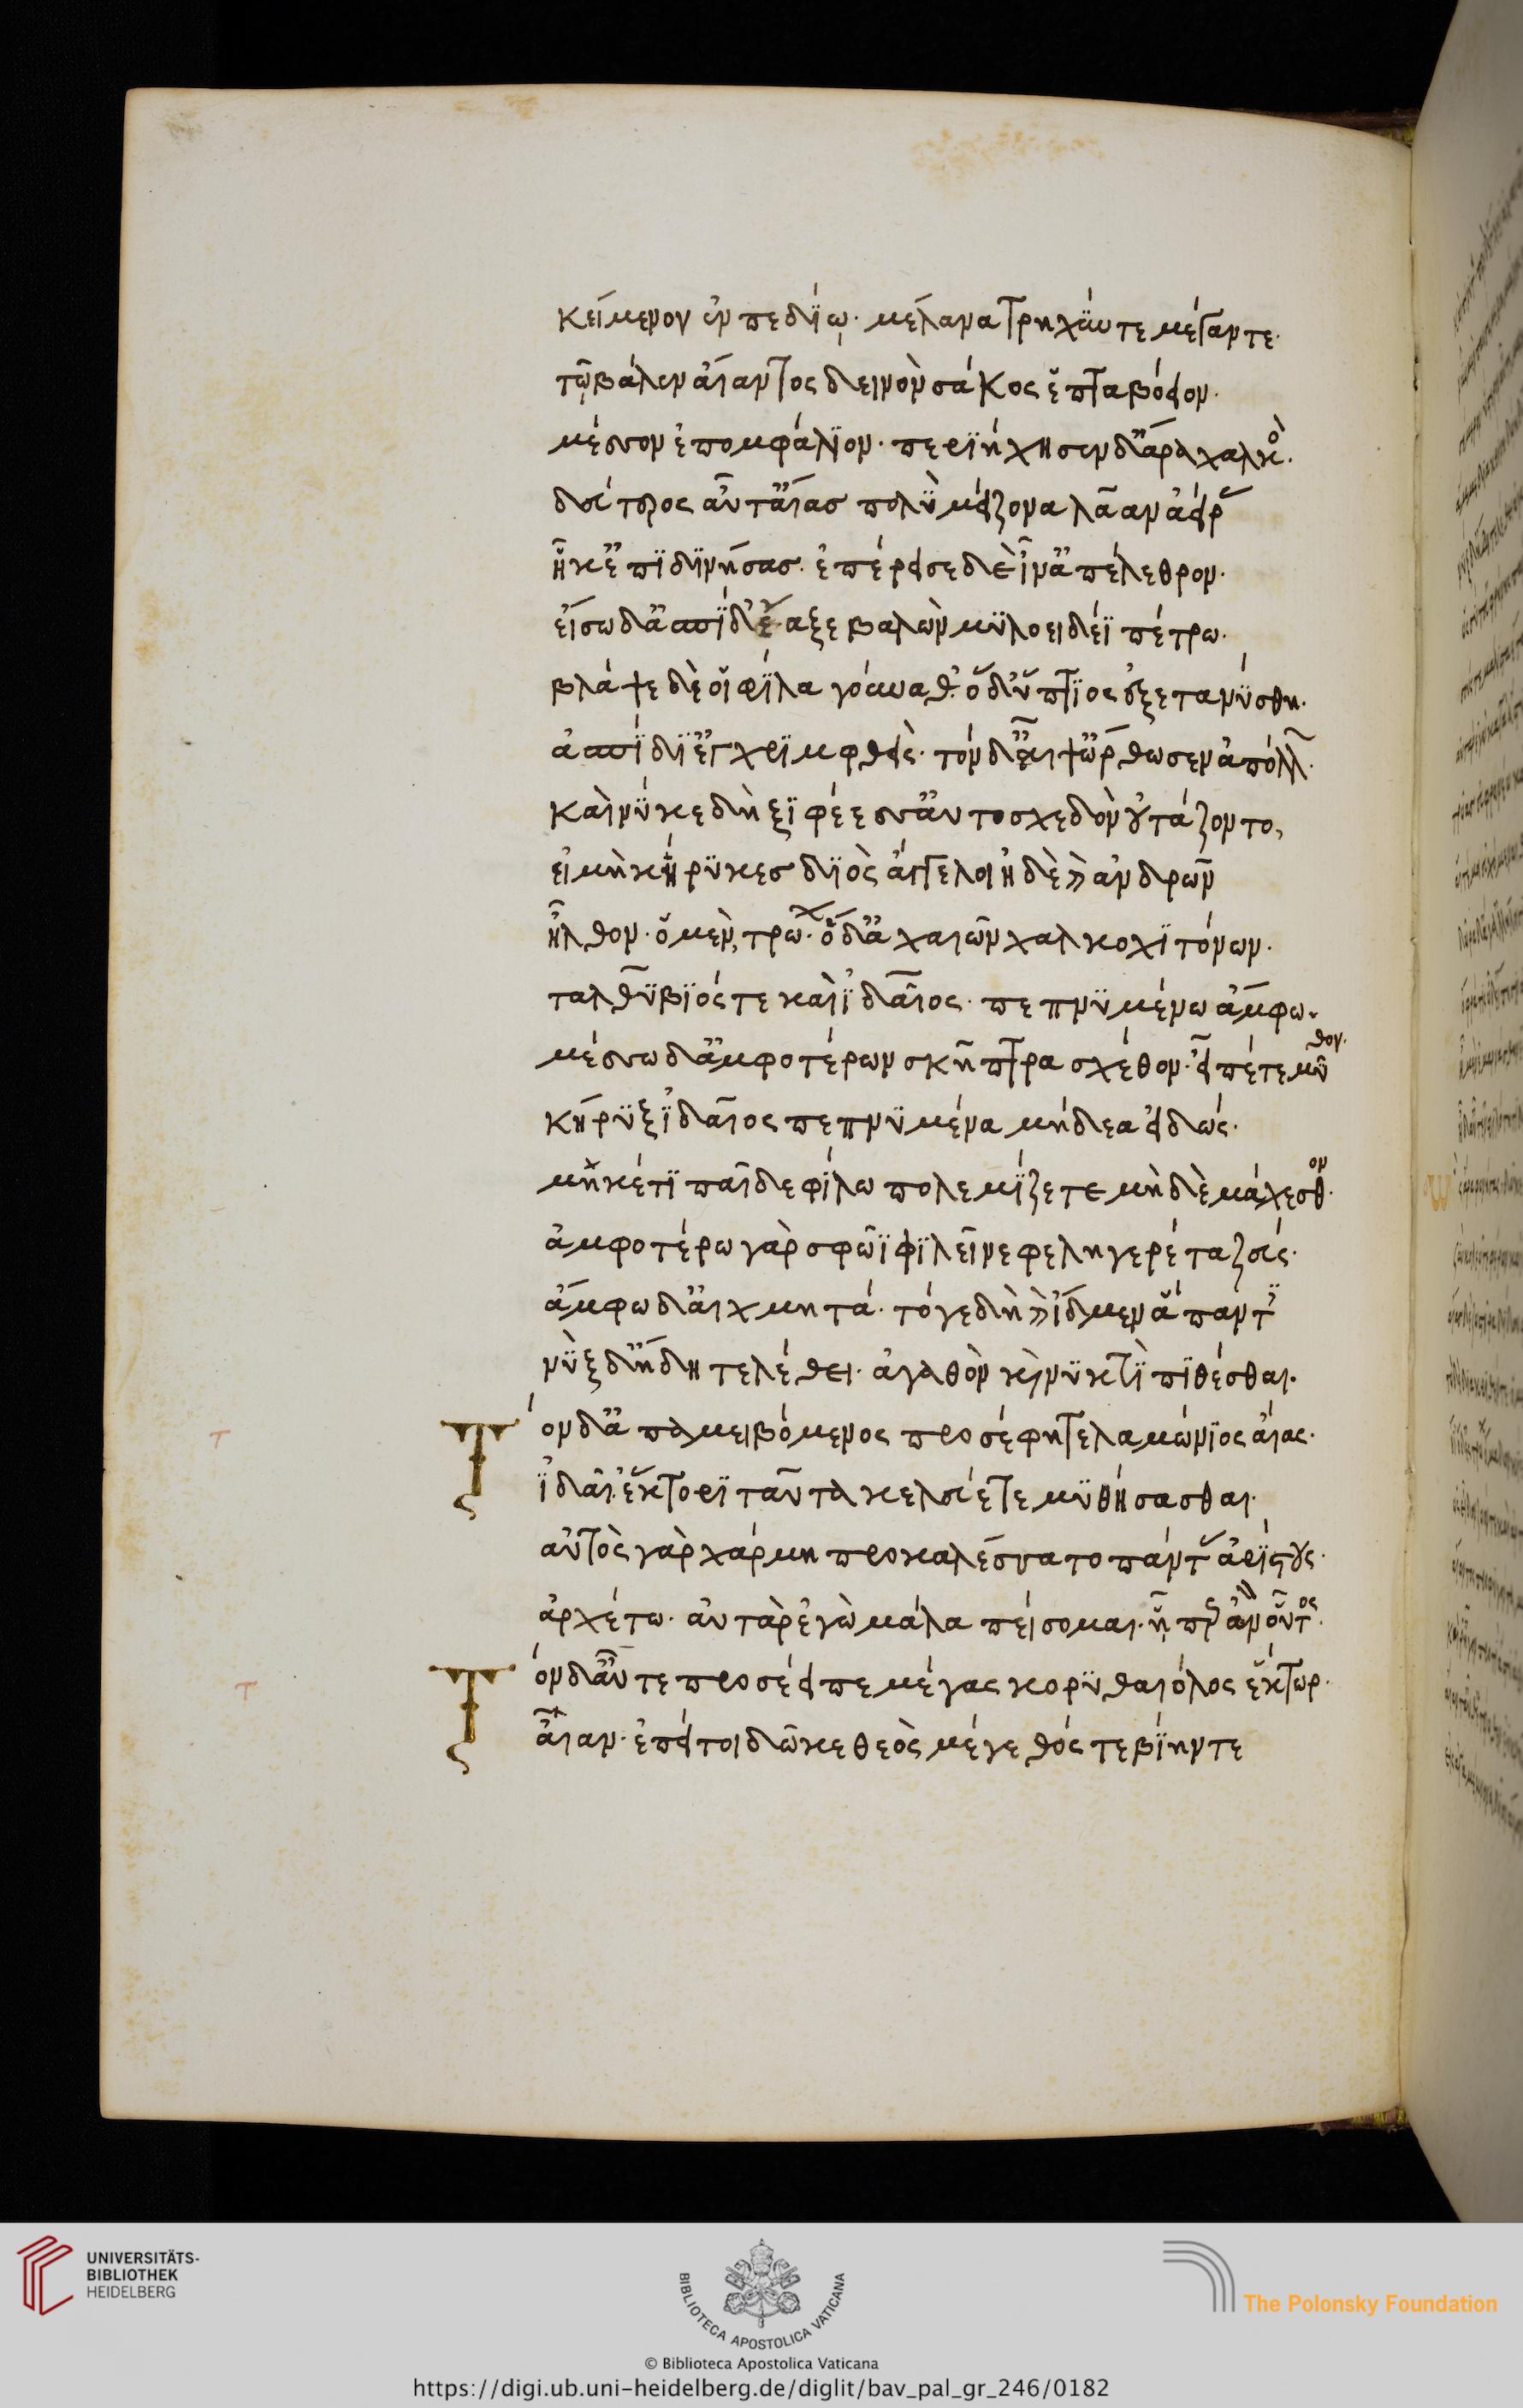 κείμενον ἐν πεδίῳ· μέλανα τρηχύν τε μέγαν τε·
τῷ βάλεν αἴαντος δεινὸν σάκος ἑπταβόειον·
μέσσον ἐπομφάλιον· περιήχησεν δ' ἄρα χαλκὸ·
δεύτερος αὖτ' αἴας πολὺ μείζονα λᾶαν ἀείρ
ἧκ' ἐπιδινήσας· ἐπέρεισε δὲ ἶν' ἀπέλεθρον·
εἴσω δ' ἀσπίδ' ἔαξε βαλὼν μυλοειδέϊ πέτρω·
βλάψε δέ οἱ φίλα γούναθ'· ὁ δ' ὕπτιος ἐξετανύσθη·
ἀσπίδι ἐγχριμφθείς· τὸν δ' αἶψ' ὤρθωσεν ἀπόλλ·
καὶ νύ κε δὴ ξιφέεσσ' αὐτοσχεδὸν οὐτάζοντο,
εἰ μὴ κήρυκες διὸς ἄγγελοι ἠδὲ ἀνδρῶν
ἦλθον· ὁ μὲν, τρώ· ὁ δ' ἀχαιῶν χαλκοχιτόνων·
ταλθύβιός τε καὶ ἰδαῖος· πεπνυμένω ἄμφω·
μέσσω δ' ἀμφοτέρων σκῆπτρα σχέθον· εἶπέ τε μῦθον·
κήρυξ ἰδαῖος πεπνυμένα μήδεα εἰδώς·
μηκέτι παῖδε φίλω πολεμίζετε μηδὲ μάχεσθον·
ἀμφοτέρω γὰρ σφῶϊ φιλεῖ νεφεληγερέτα ζεύς·
ἄμφω δ' αἰχμητά· τό γε δὴ ἴδμεν ἅπαντ
νὺξ δ' ἤδη τελέθει· ἀγαθὸν κὶ νυκτὶ πιθέσθαι·
Τὸν δ' ἀπαμειβόμενος προσέφη τελαμώνιος αἴας·
ἰδαῖ· ἕκτορι ταῦτα κελεύετε μυθήσασθαι·
αὐτὸς γὰρ χάρμη προκαλέσσατο πάντ ἀρίστους·
ἀρχέτω· αὐτὰρ ἐγὼ μάλα πείσομαι· ᾗ πρ ἂν οὗτος·
Τὸν δ' αὖτε προσέειπε μέγας κορυθαιόλος ἕκτωρ·
αἶαν· ἐπεί τοι δῶκε θεὸς μέγεθός τε βίην τε
T
T
UNIVERSITÄTS-
BIBLIOTHEK
HEIDELBERG
BIBLIOTECA APOSTOLICA VATICANA
The Polonsky Foundation
© Biblioteca Apostolica Vaticana
https://digi.ub.uni-heidelberg.de/diglit/bav_pal_gr_246/0182